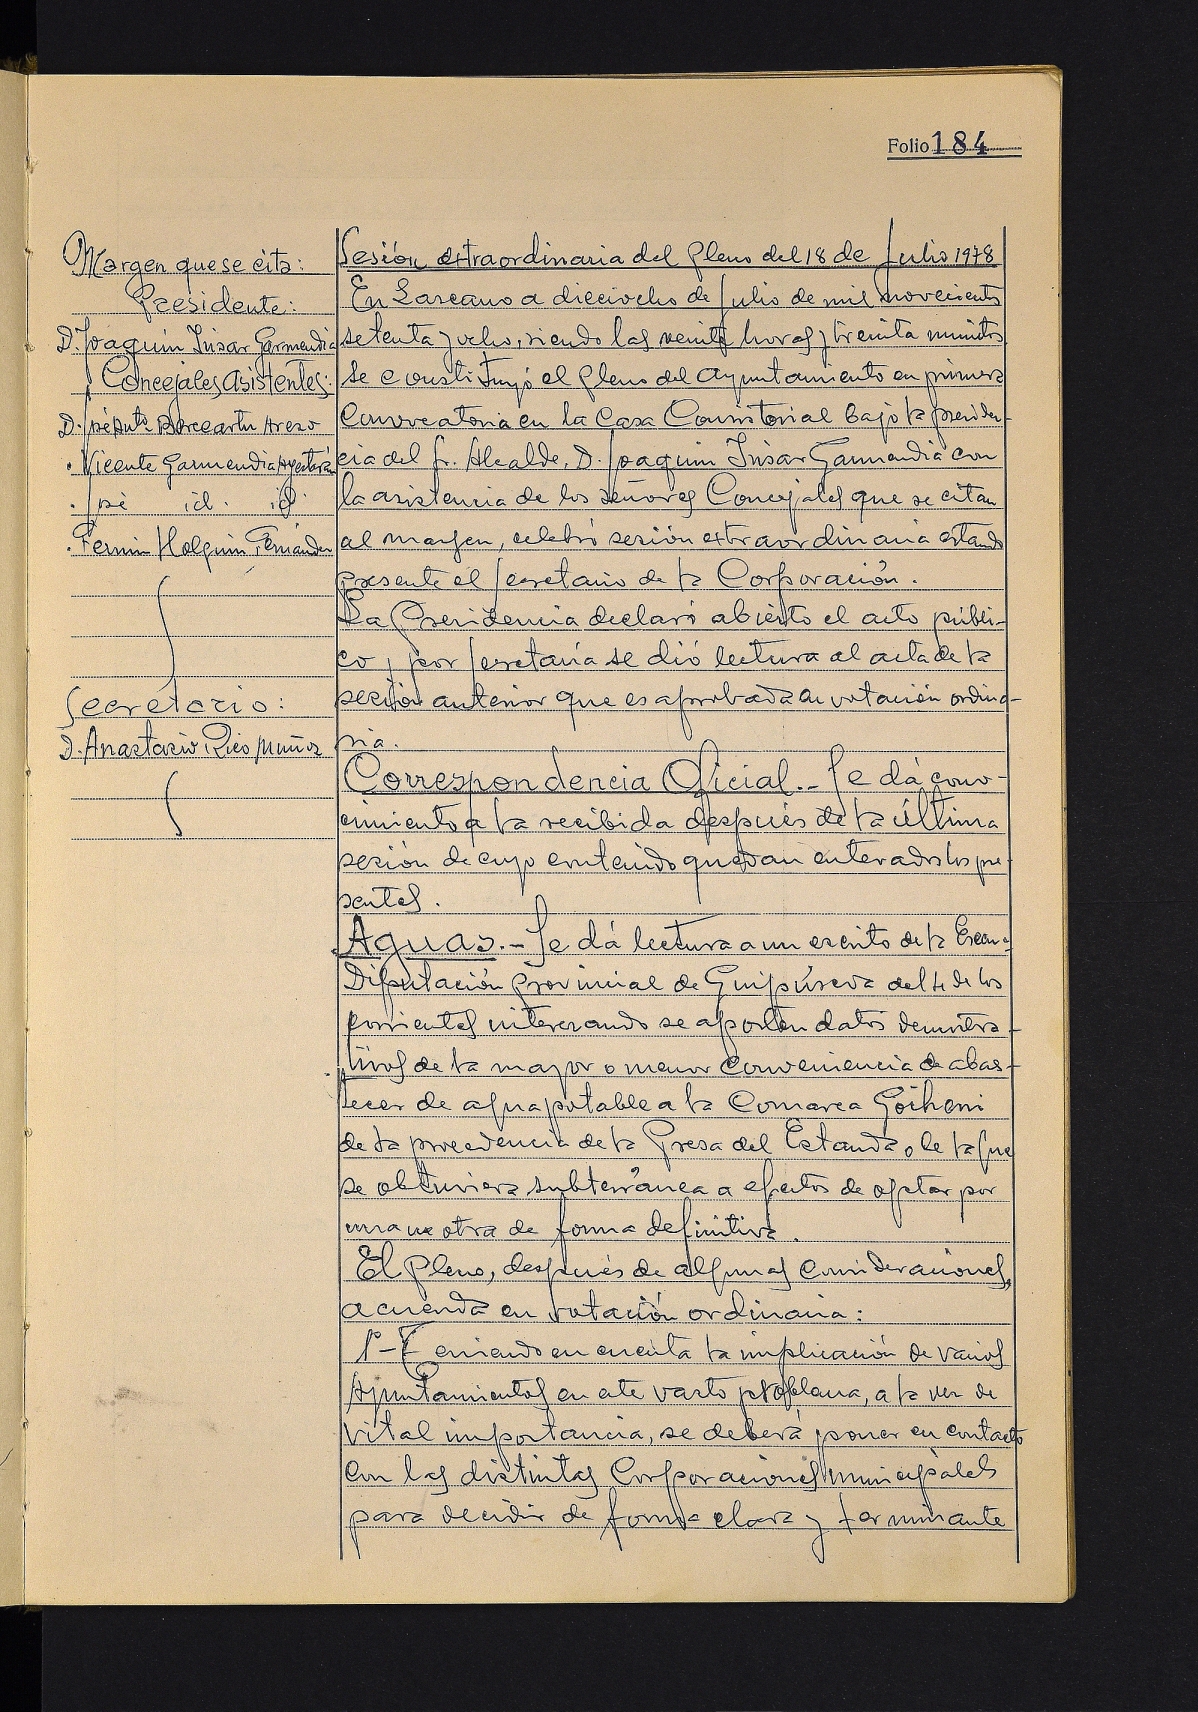 Folio 184
Margen que se cita:
Presidente:
D. Joaquin Insar Garmendia
Concejales Asistentes:
D. José Anto. Arezo
. Vicente Garmendia
. José id. id.
. Fermin Holguin Fernández
Secretario:
D. Anastasio Rico Muñoz
Sesión extraordinaria del Pleno del 18 de Julio 1978
En Lazcano a dieciocho de Julio de mil novecientos
setenta y ocho, siendo las veinte horas y treinta minutos
se constituyó el Pleno del Ayuntamiento en primera
Convocatoria en la Casa Consistorial bajo la presiden-
cia del Sr. Alcalde, D. Joaquin Insar Garmendia con
la asistencia de los señores Concejales que se citan
al margen, celebró sesión extraordinaria estando
presente el Secretario de la Corporación.
La Presidencia declaró abierto el acto públi-
co, por Secretaría se dió lectura al acta de la
sesión anterior que es aprobada en votación ordina-
ria.
Correspondencia Oficial.- Se dá cono-
cimiento a la recibida después de la última
sesión de cuyo contenido quedan enterados los pre-
sentes.
Aguas.- Se dá lectura a un escrito de la Excma
Diputación Provincial de Guipúzcoa del 4 de los
corrientes interesando se aporten datos demostra-
tivos de la mayor o menor conveniencia de abas-
tecer de agua potable a la Comarca Goiherri
de la procedencia de la Presa del Estanda o de la que
se obtuviera subterránea a efectos de optar por
una u otra de forma definitiva.
El Pleno, después de algunas consideraciones,
acuerda en votación ordinaria:
1º- Teniendo en cuenta la implicación de varios
Ayuntamientos en este vasto problema, a la vez de
vital importancia, se deberá poner en contacto
con las distintas Corporaciones Municipales
para decidir de forma clara y terminante